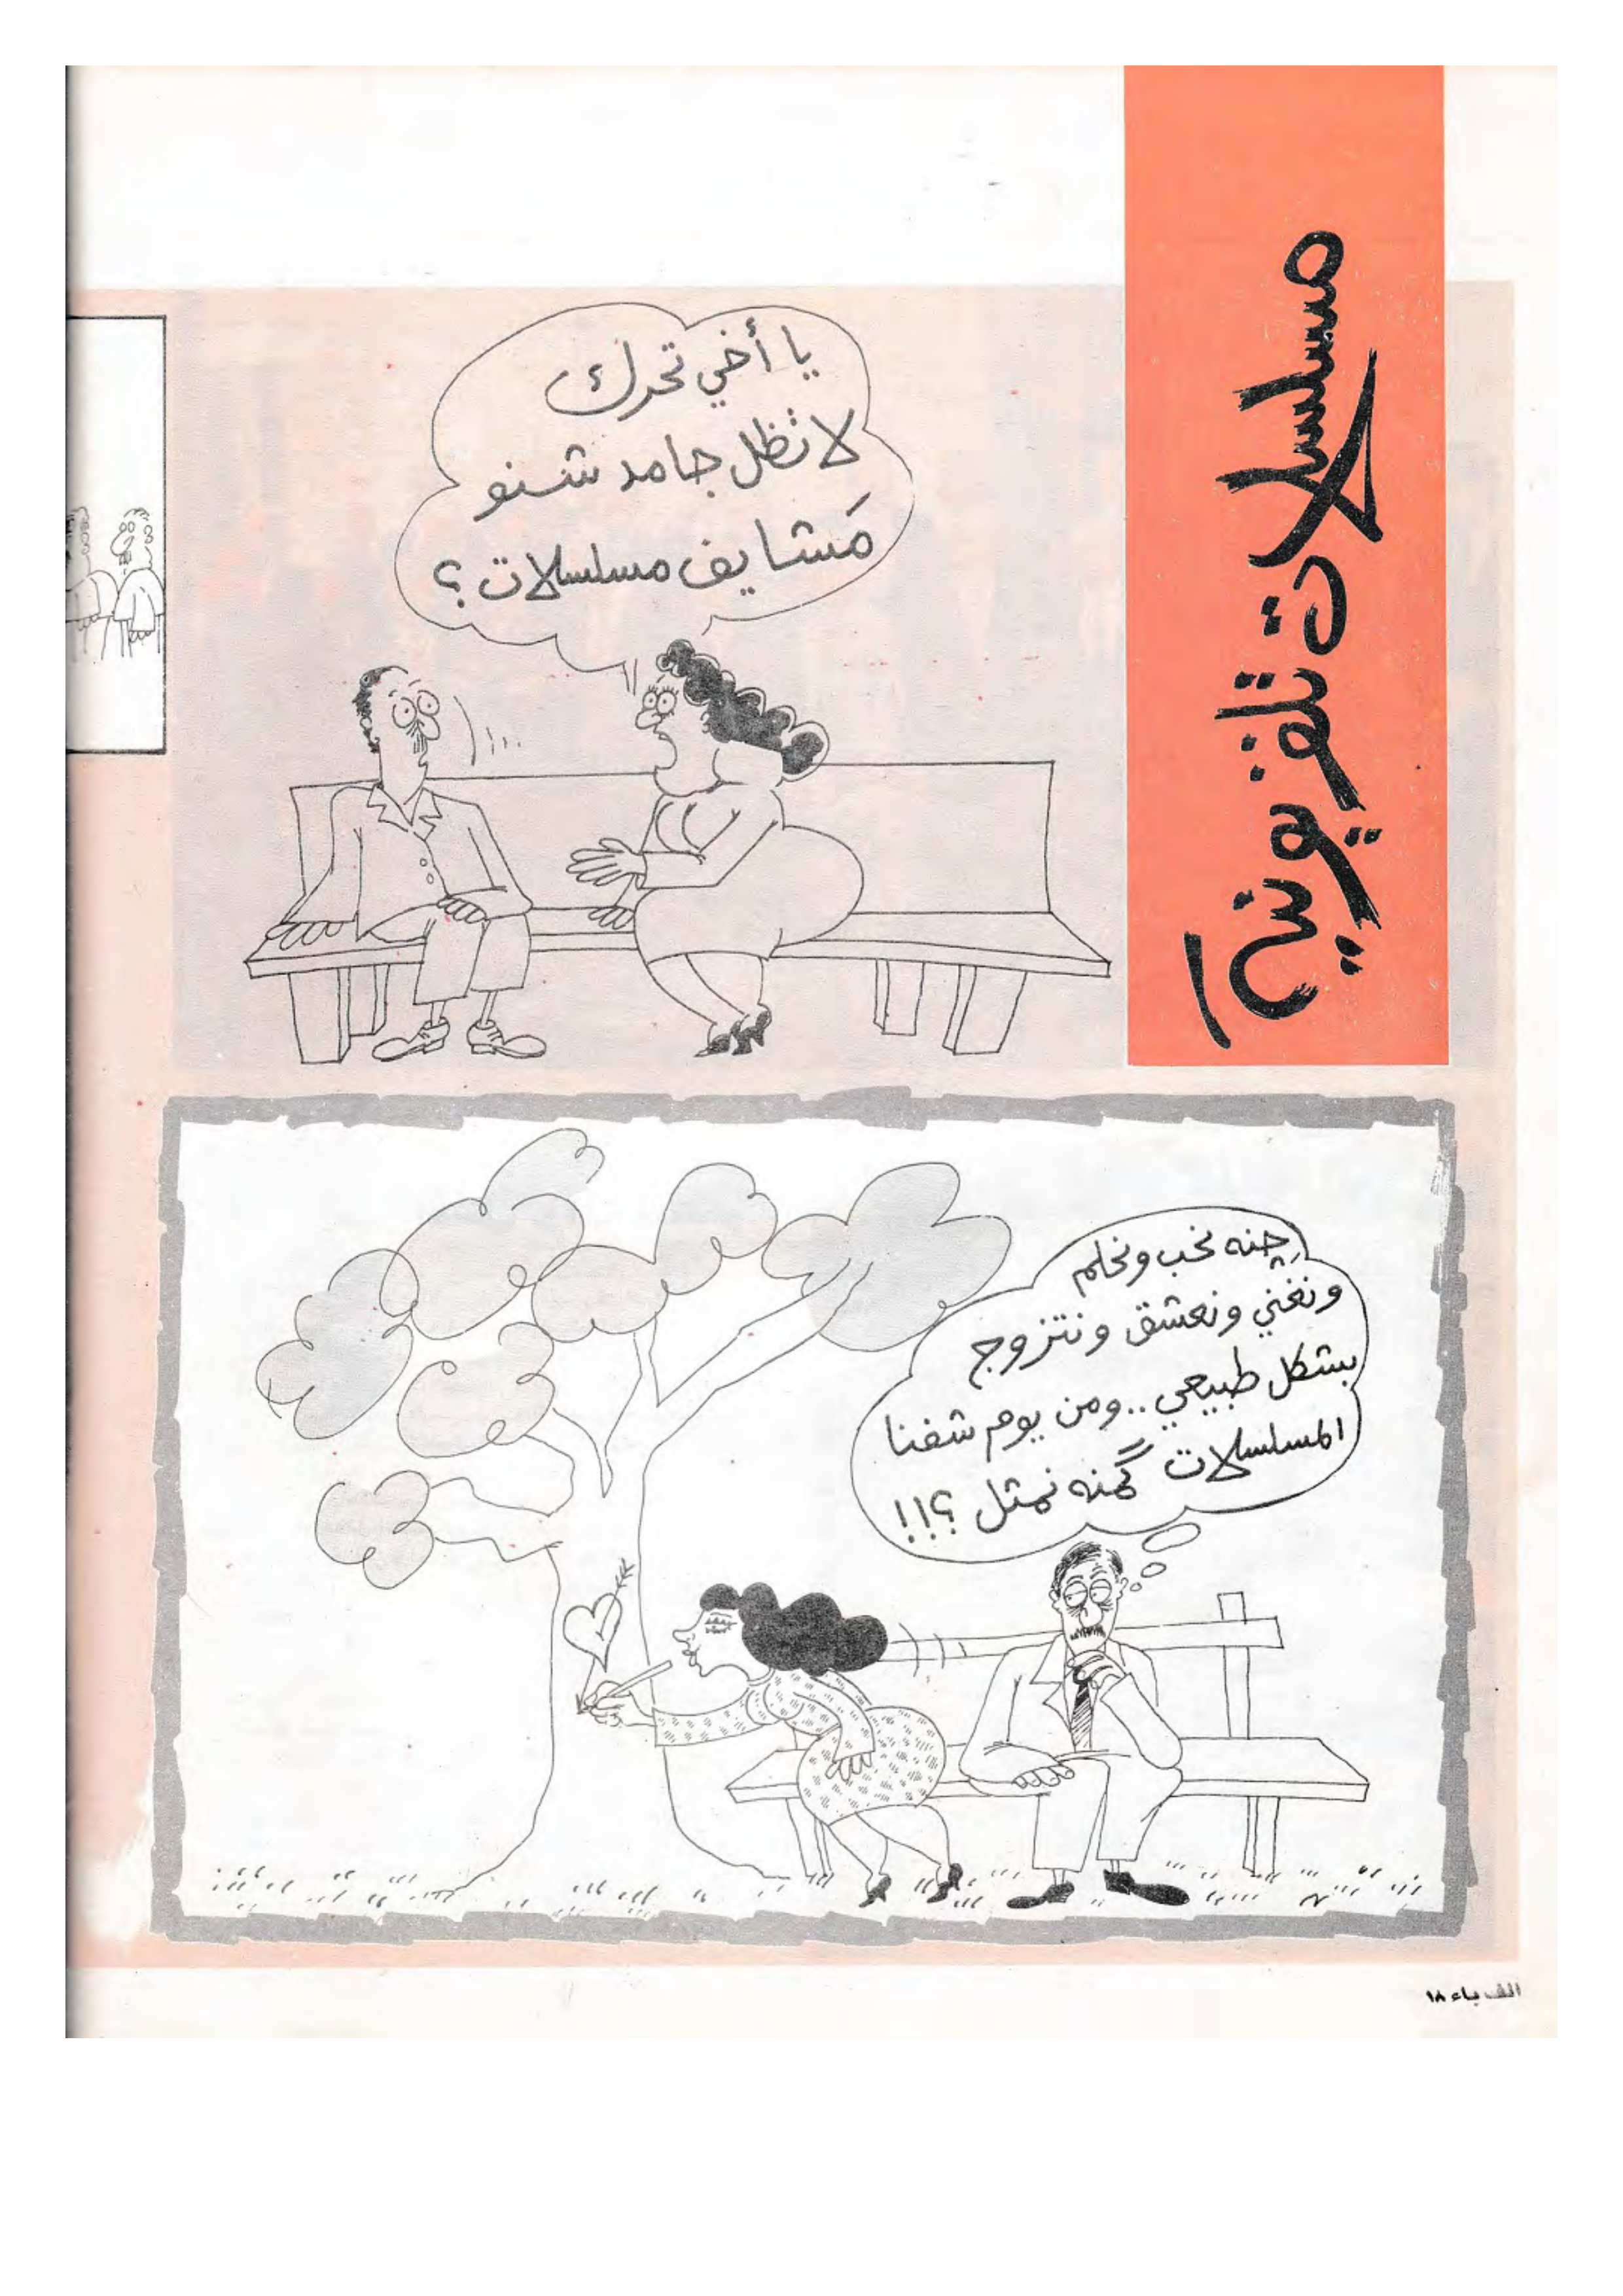 مسلسلات تلفزيونية
يا أخي تحرك
لا تظل جامد شنو
مَشايف مسلسلات؟
چِنه نحب ونحلم
ونغني ونعشق ونتزوج
بشكل طبيعي.. ومن يوم شفنا
المسلسلات گمنه نمثل ؟!!
الف باء ١٨